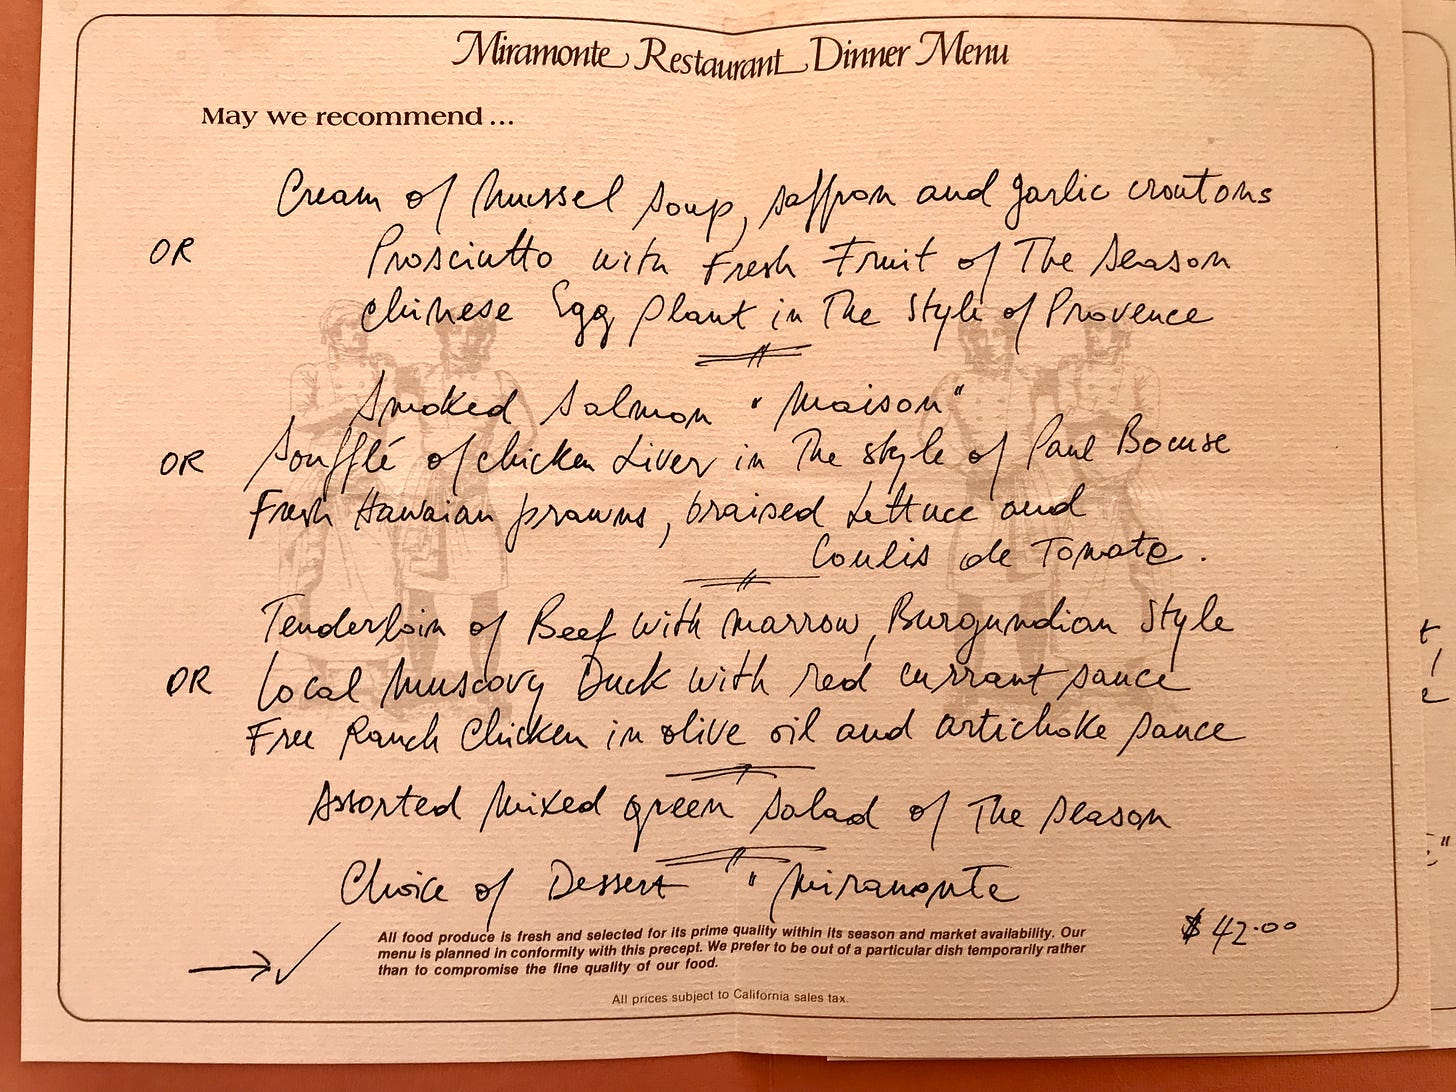 Miramonte Restaurant Dinner Menu
May we recommend...
Cream of Mussel Soup, saffron and garlic croutons
OR
Prosciutto with Fresh Fruit of The Season
Chinese Egg Plant in The Style of Provence
Smoked Salmon "Maison"
OR
Soufflé of chicken Liver in The style of Paul Bocuse
Fresh Hawaian prawns, braised Lettuce and
Coulis de Tomate.
Tenderloin of Beef with marrow, Burgundian Style
OR
Local Muscovy Duck with red currant sauce
Free Ranch Chicken in olive oil and artichoke sauce
Assorted Mixed green Salad of The Season
Choice of Dessert "Miramonte
$42.00
All food produce is fresh and selected for its prime quality within its season and market availability. Our
menu is planned in conformity with this precept. We prefer to be out of a particular dish temporarily rather
than to compromise the fine quality of our food.
All prices subject to California sales tax.